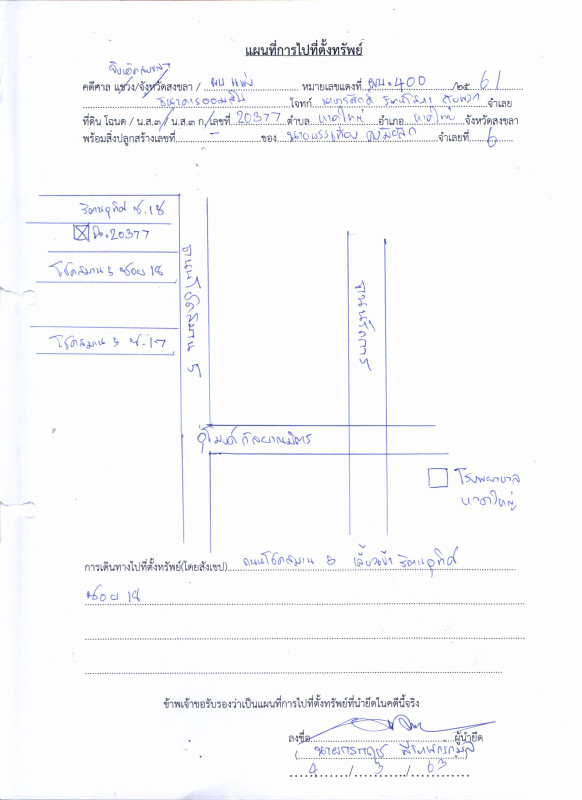 แผนที่การไปที่ตั้งทรัพย์
คดีศาล แขวง/จังหวัดสงขลา / ผบ แพ่ง หมายเลขแดงที่ ผบ.400 /๒๕ 61
ธนาคารออมสิน โจทก์ จำเลย
ที่ดิน โฉนด / น.ส.๓ / น.ส.๓ ก./เลขที่ 20377 ตำบล หาดใหญ่ อำเภอ หาดใหญ่ จังหวัดสงขลา
พร้อมสิ่งปลูกสร้างเลขที่ - ของ จำเลยที่ 6
ซ.18
ฉ.20377
โชคสมาน 5 ซอย 18
โชคสมาน 5 ซ.17
ถนนโชคสมาน 5
อุโมงค์ กัลยาณมิตร
โรงพยาบาล
หาดใหญ่
การเดินทางไปที่ตั้งทรัพย์(โดยสังเขป) ถนนโชคสมาน 5 เลี้ยวเข้า
ซอย 18
ข้าพเจ้าขอรับรองว่าเป็นแผนที่การไปที่ตั้งทรัพย์ที่นำยึดในคดีนี้จริง
ลงชื่อ ผู้นำยึด
4 / 3 / 63